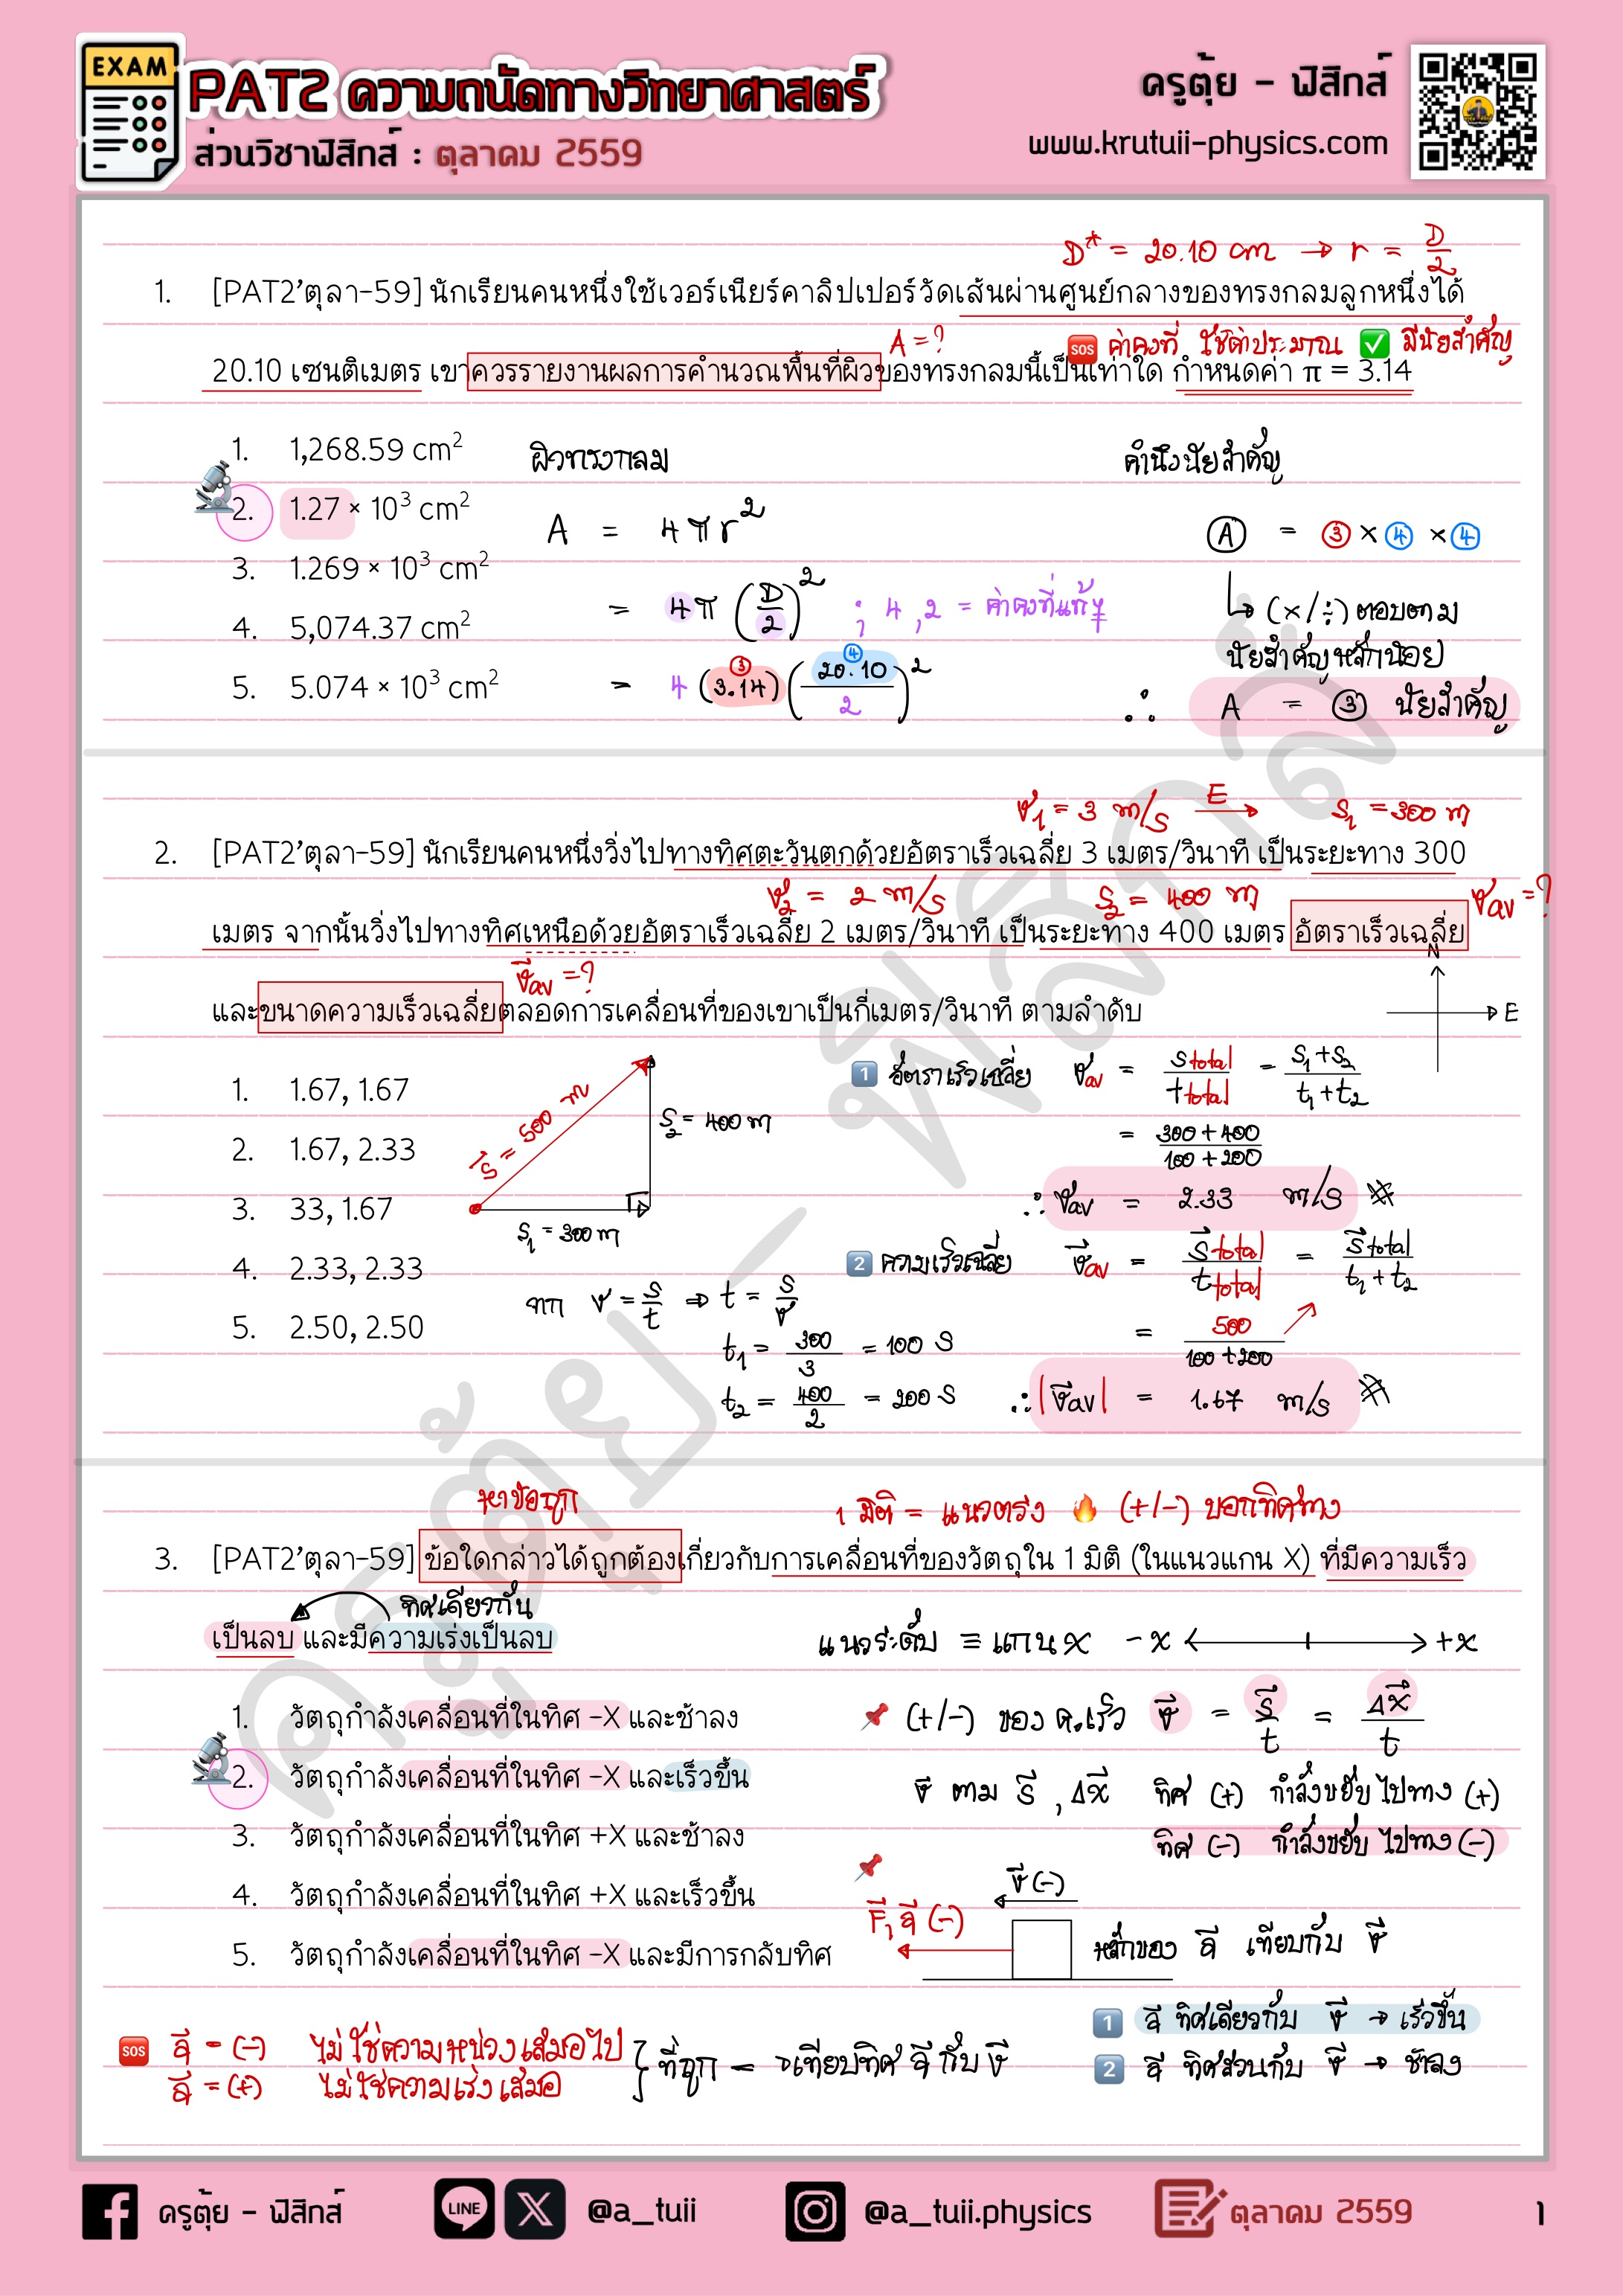 EXAM
PAT2 ความถนัดทางวิทยาศาสตร์
ส่วนวิชาฟิสิกส์ : ตุลาคม 2559
ครูตุ้ย - ฟิสิกส์
www.krutuii-physics.com
D* = 20.10 cm → r = D/2
1. [PAT2'ตุลา-59] นักเรียนคนหนึ่งใช้เวอร์เนียร์คาลิปเปอร์วัดเส้นผ่านศูนย์กลางของทรงกลมลูกหนึ่งได้
A = ? SOS ค่าคงที่ ใช้ค่าประมาณ ✅ มีนัยสำคัญ
20.10 เซนติเมตร เขาควรรายงานผลการคำนวณพื้นที่ผิวของทรงกลมนี้เป็นเท่าใด กำหนดค่า π = 3.14
1. 1,268.59 cm²
2. 1.27 × 10³ cm²
3. 1.269 × 10³ cm²
4. 5,074.37 cm²
5. 5.074 × 10³ cm²
ผิวทรงกลม
A = 4πr²
= 4π (D/2)² ; 4 , 2 = ค่าคงที่แท้ๆ
= 4 (3.14) (20.10/2)²
③ ④
คำนึงนัยสำคัญ
Ⓐ = ③ × ④ × ④
↳ (×/÷) ตอบตาม
นัยสำคัญหลักน้อย
∴ A = ③ นัยสำคัญ
v₁ = 3 m/s E → S₁ = 300 m
2. [PAT2'ตุลา-59] นักเรียนคนหนึ่งวิ่งไปทางทิศตะวันตกด้วยอัตราเร็วเฉลี่ย 3 เมตร/วินาที เป็นระยะทาง 300
v₂ = 2 m/s S₂ = 400 m v av = ?
เมตร จากนั้นวิ่งไปทางทิศเหนือด้วยอัตราเร็วเฉลี่ย 2 เมตร/วินาที เป็นระยะทาง 400 เมตร อัตราเร็วเฉลี่ย
v⃗ av = ?
และขนาดความเร็วเฉลี่ยตลอดการเคลื่อนที่ของเขาเป็นกี่เมตร/วินาที ตามลำดับ
N
E
1. 1.67, 1.67
2. 1.67, 2.33
3. 33, 1.67
4. 2.33, 2.33
5. 2.50, 2.50
S⃗ = 500 m
S₂ = 400 m
S₁ = 300 m
จาก v = S/t ⇒ t = S/v
t₁ = 300/3 = 100 S
t₂ = 400/2 = 200 S
1 อัตราเร็วเฉลี่ย v av = S total/t total = S₁ + S₂/t₁ + t₂
= 300 + 400/100 + 200
∴ v av = 2.33 m/s #
2 ความเร็วเฉลี่ย v⃗ av = S⃗ total/t total = S⃗ total/t₁ + t₂
= 500/100 + 200
∴ |v⃗ av| = 1.67 m/s #
หาข้อถูก
1 มิติ = แนวตรง 🔥 (+/-) บอกทิศทาง
3. [PAT2'ตุลา-59] ข้อใดกล่าวได้ถูกต้องเกี่ยวกับการเคลื่อนที่ของวัตถุใน 1 มิติ (ในแนวแกน X) ที่มีความเร็ว
ทิศเดียวกัน
เป็นลบ และมีความเร่งเป็นลบ
แนวระดับ ≡ แกน x -x ↔ +x
1. วัตถุกำลังเคลื่อนที่ในทิศ -X และช้าลง
2. วัตถุกำลังเคลื่อนที่ในทิศ -X และเร็วขึ้น
3. วัตถุกำลังเคลื่อนที่ในทิศ +X และช้าลง
4. วัตถุกำลังเคลื่อนที่ในทิศ +X และเร็วขึ้น
5. วัตถุกำลังเคลื่อนที่ในทิศ -X และมีการกลับทิศ
📌 (+/-) ของ ค.เร็ว v⃗ = S⃗/t = Δx⃗/t
v⃗ ตาม S⃗ , Δx⃗ ทิศ (+) กำลังขยับ ไปทาง (+)
ทิศ (-) กำลังขยับ ไปทาง (-)
v⃗ (-)
F⃗, a⃗ (-)
หลักของ a⃗ เทียบกับ v⃗
1 a⃗ ทิศเดียวกับ v⃗ → เร็วขึ้น
2 a⃗ ทิศสวนกับ v⃗ → ช้าลง
SOS a⃗ = (-) ไม่ใช่ความหน่วงเสมอไป
a⃗ = (+) ไม่ใช่ความเร่งเสมอ
} ที่ถูก = →เทียบทิศ a⃗ กับ v⃗
ครูตุ้ย - ฟิสิกส์
ครูตุ้ย - ฟิสิกส์
LINE
@a_tuii
@a_tuii.physics
ตุลาคม 2559
1